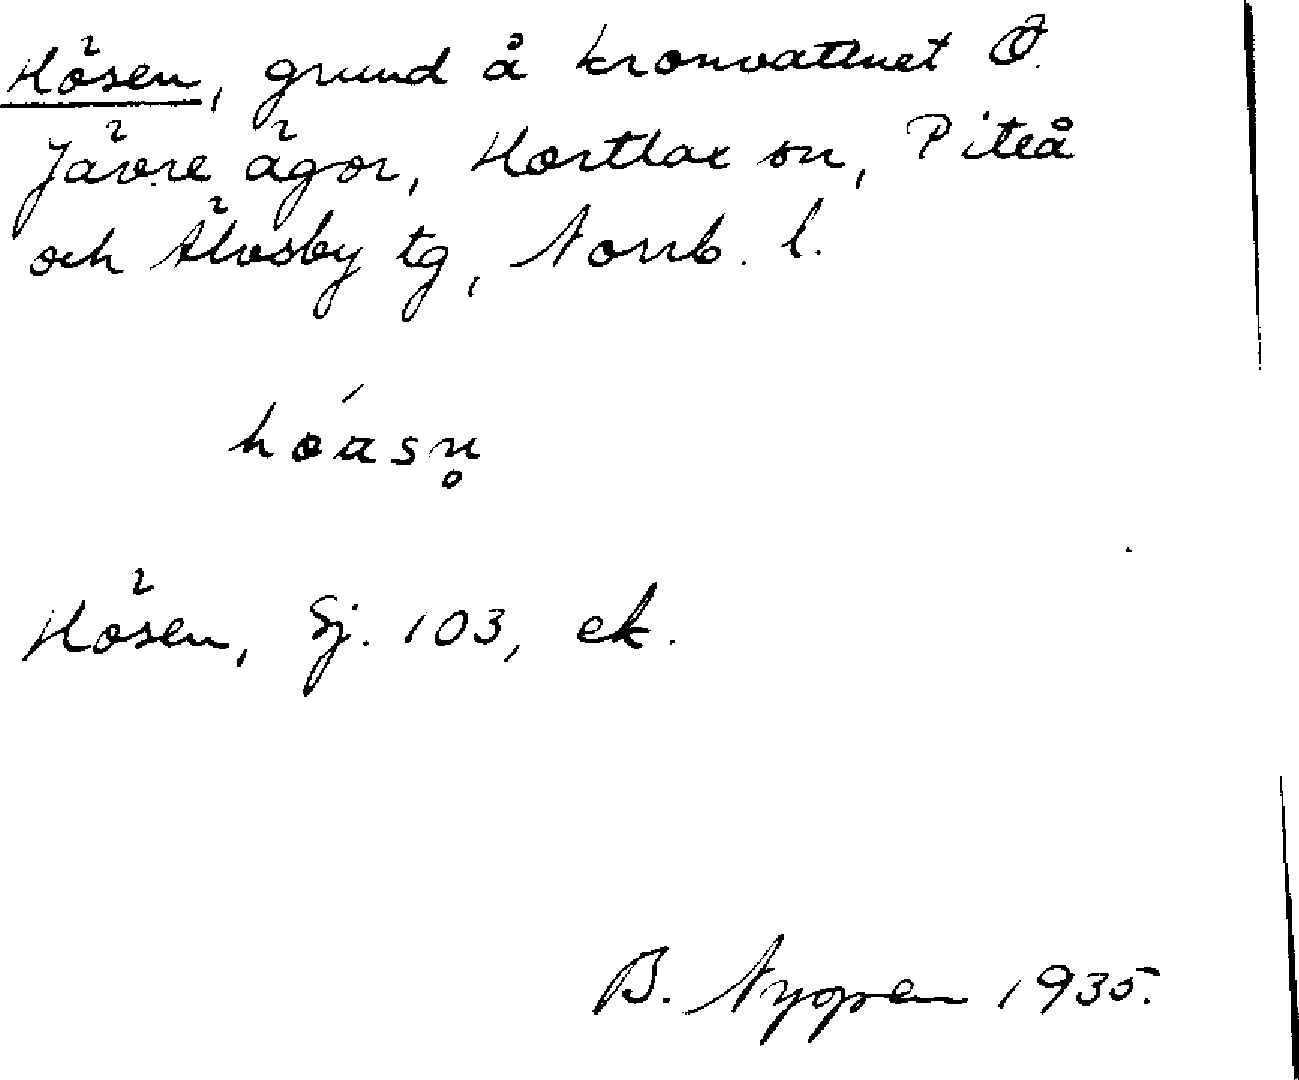 Hösen, grund å kronvattnet Ö.
Jävre ägor, Hortlax sn, Piteå
och Älvsby tg, Norrb. l.
hǿasn̥
Hösen, Sj. 103, ek.
B. Nygren 1935.